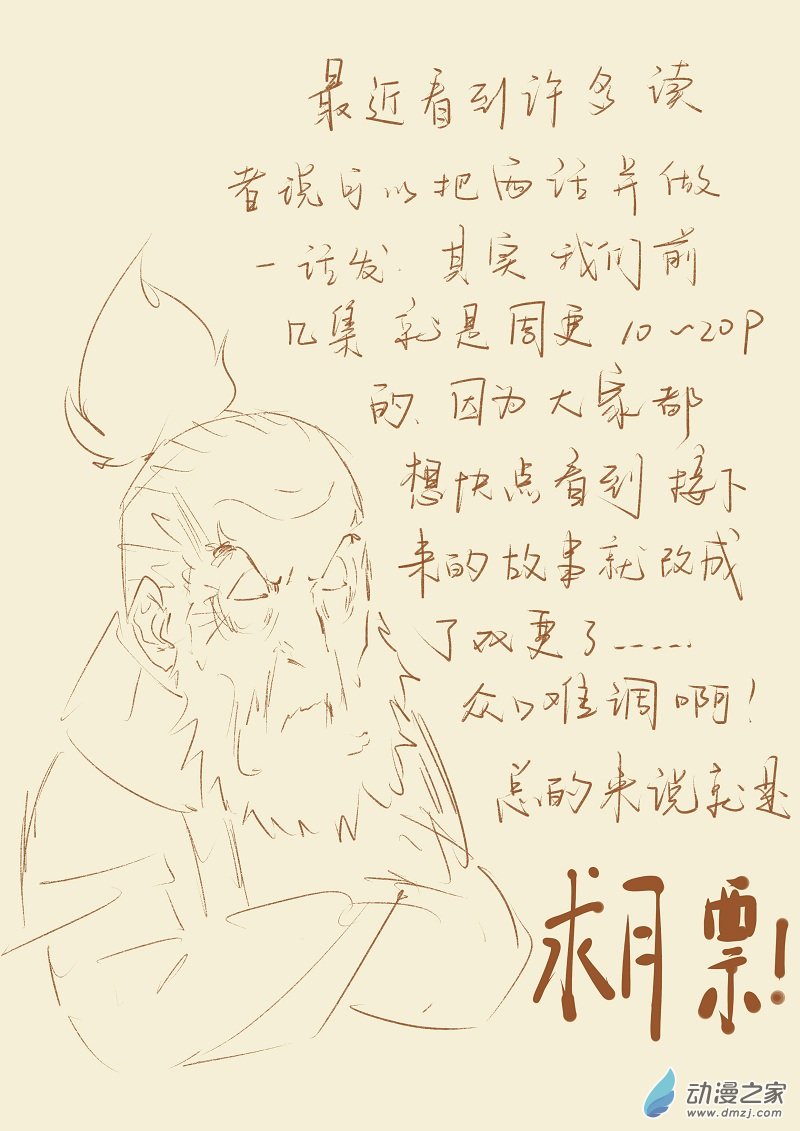 最近看到许多读
者说可以把两话并做
一话发.其实我们前
几集就是周更10~20P
的、因为大家都
想快点看到接下
来的故事就改成
了双更了......
众口难调啊!
总的来说就是
求月票!
动漫之家
www.dmzj.com